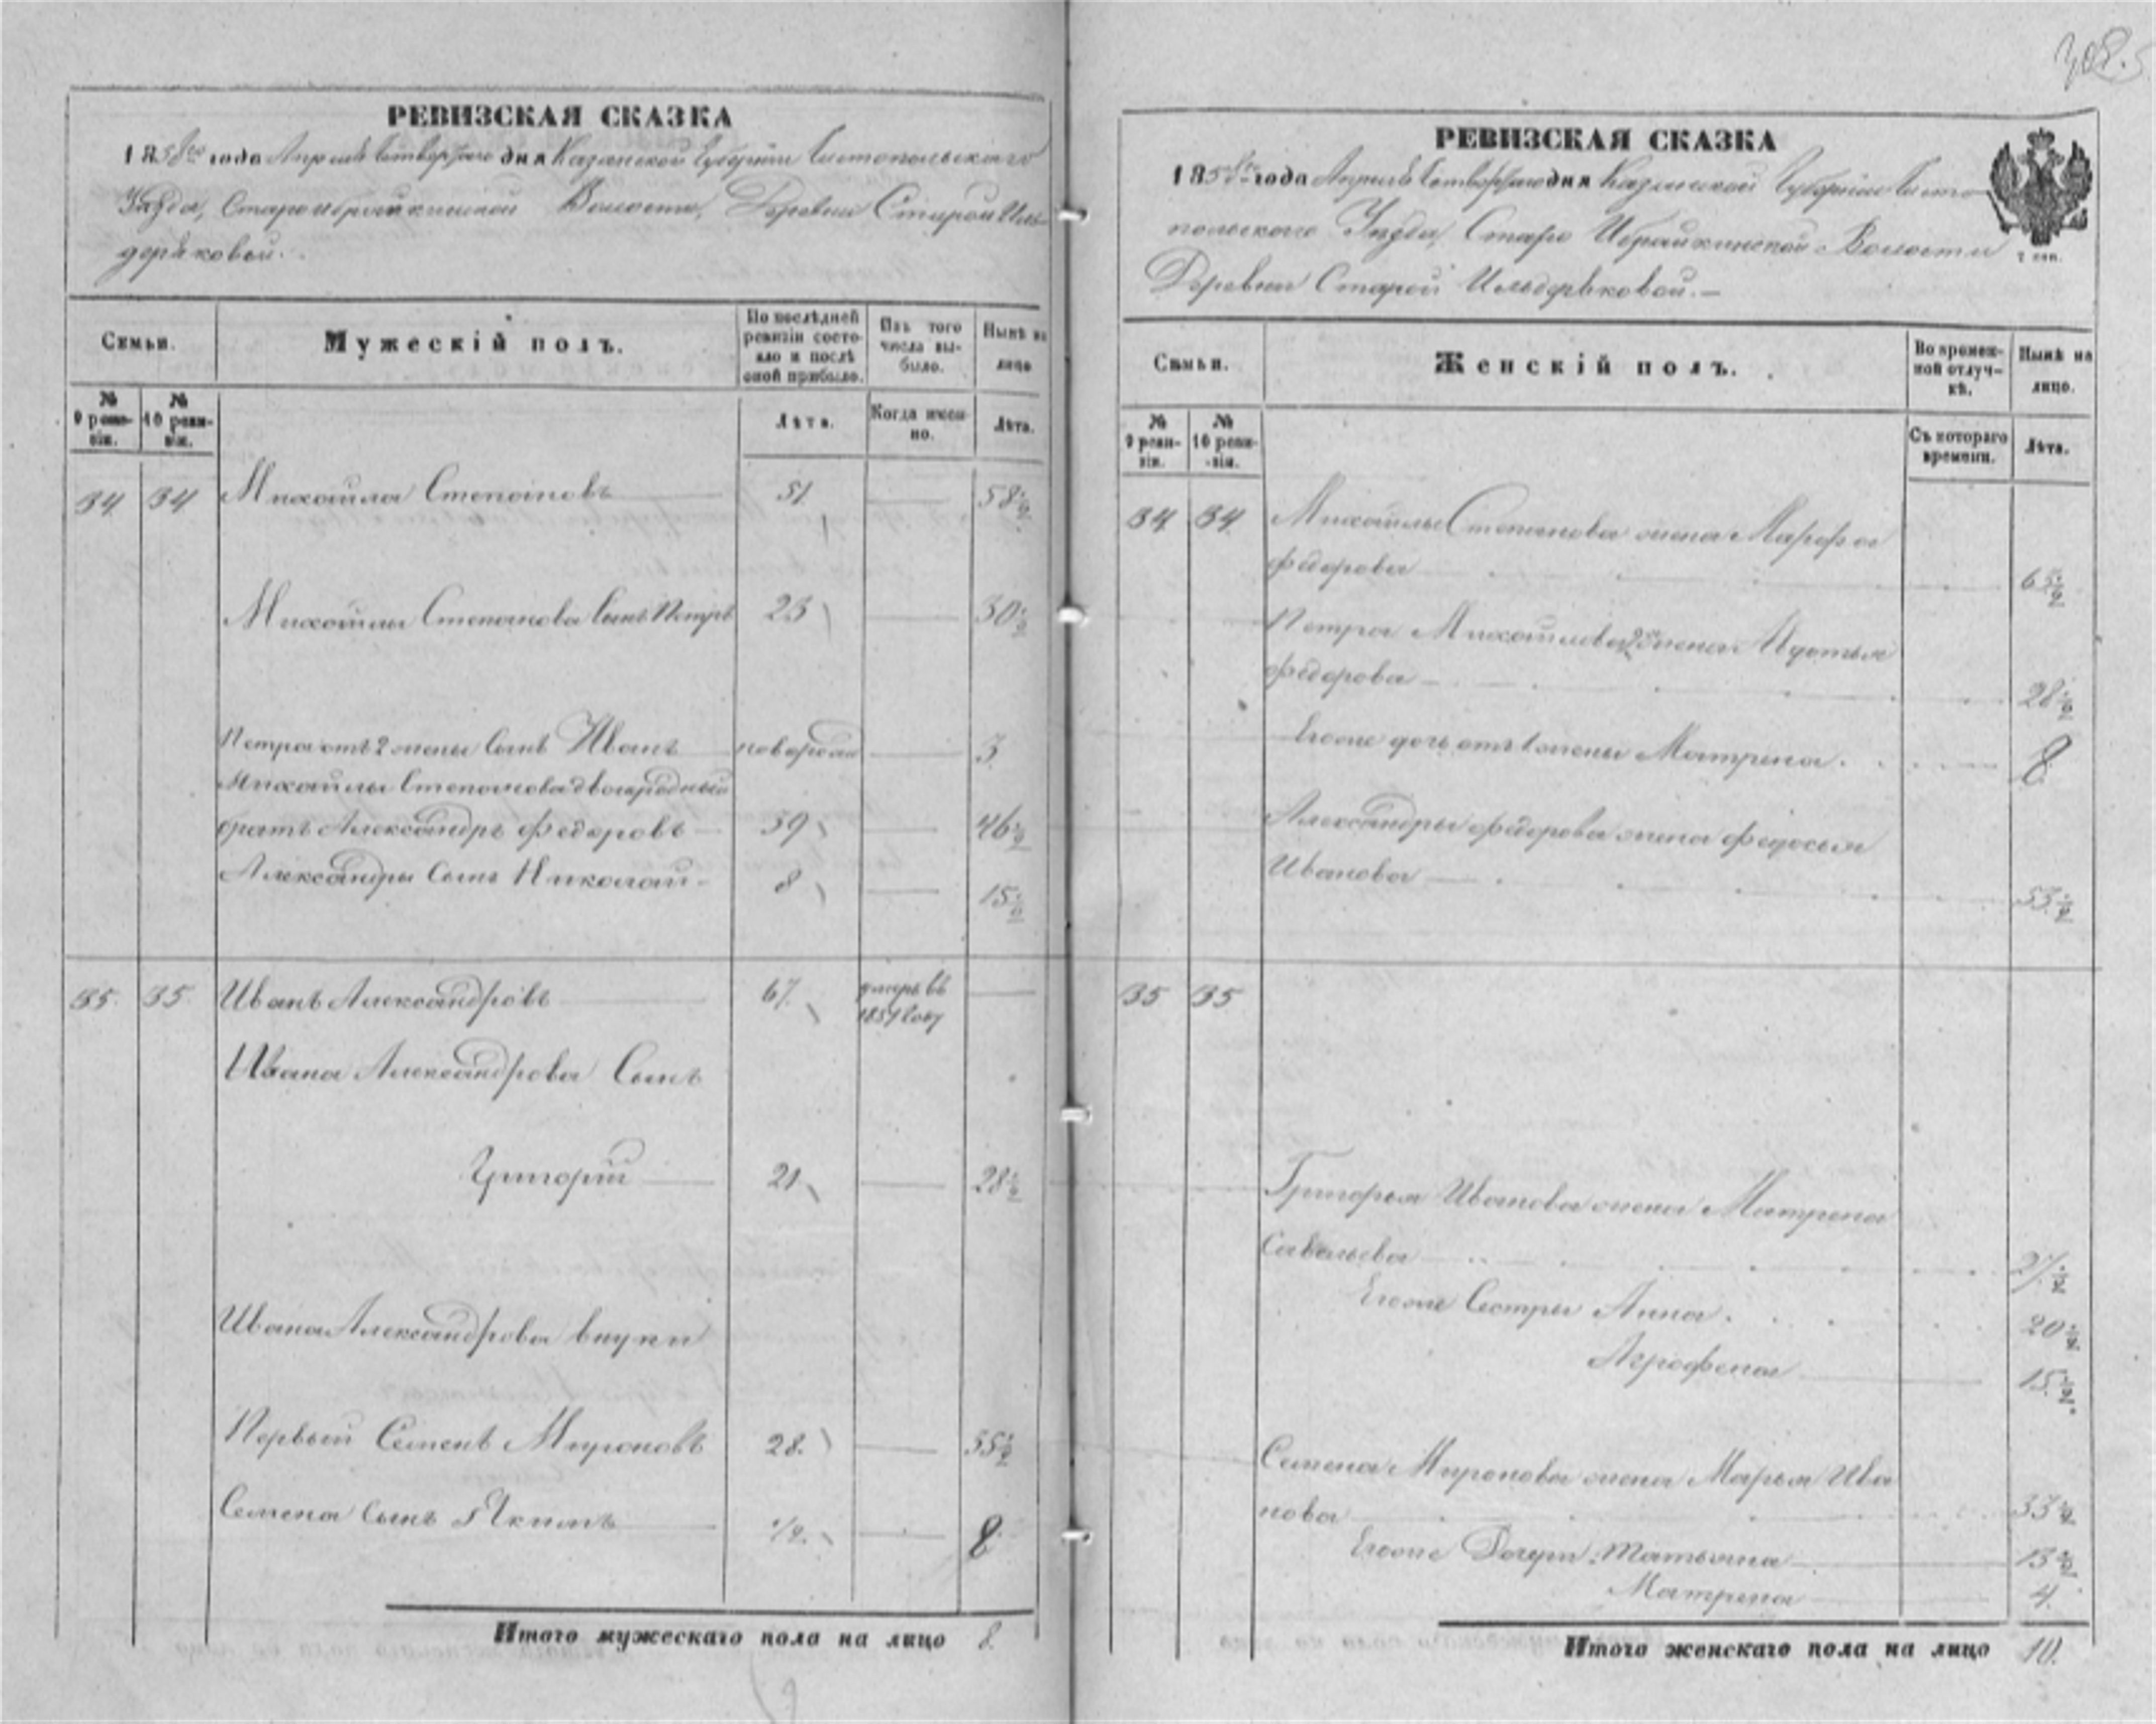 308.
РЕВИЗСКАЯ СКАЗКА
1858го года Апреля Четвертаго дня Казанской Губернии Чистопольскаго
Уѣзда, Староибрайкинской Волости, Деревни Старой Иль-
деряковой.
Семьи.
Мужескій полъ.
По послѣдней ревизіи состо-
яло и послѣ
оной прибыло.
Изъ того
числа вы-
было.
Нынѣ на
лицо
№
9 реви-
зіи.
№
10 реви-
зіи.
Лѣта.
Когда имен-
но.
Лѣта.
34. 34 Михайла Степановъ 51. 58 1/2
Михайлы Степанова Сынъ Петръ 23 30 1/2
Петра отъ 2 жены Сынъ Иванъ новорож 3.
Михайлы Степанова двоюродный
братъ Александръ Федоровъ 39 46 1/2
Александры Сынъ Николай 8 15 1/2
35. 35 Иванъ Александровъ 67. умеръ въ
1851 году
Ивана Александрова Сынъ
Григорій 21 28 1/2
Ивана Александрова внуки
Первый Семенъ Мироновъ 28. 35 1/2
Семена Сынъ Якимъ 1/2. 8
Итого мужескаго пола на лицо 8.
РЕВИЗСКАЯ СКАЗКА
1858го года Апреля Четвертаго дня Казанской Губернии Чисто
польскаго Уѣзда, Старо Ибрайкинской Волости
Деревни Старой Ильдеряковой.
Семьи.
Женскій полъ.
Во времен-
ной отлуч-
кѣ.
Нынѣ на
лицо.
№
9 реви-
зіи.
№
10 реви-
зіи.
Съ котораго
времени.
Лѣта.
34. 34. Михайлы Степанова жена Марфа
Федорова 65 1/2
Петра Михайлова 2 жена
Федорова 28 1/2
Егоже дочь отъ 1 жены Матрена. 8.
Александры Федорова жена Федосья
Иванова 53 1/2
35 35
Григорья Иванова жена Матрена
Савельева 27 1/2
Егоже Сестры Анна. 20 1/2
Аграфена 15 1/2
Семена Миронова жена Марья Ива
нова 33 1/2
Егоже Дочери: Татьяна 13 1/2
Матрена 4.
Итого женскаго пола на лицо 10.